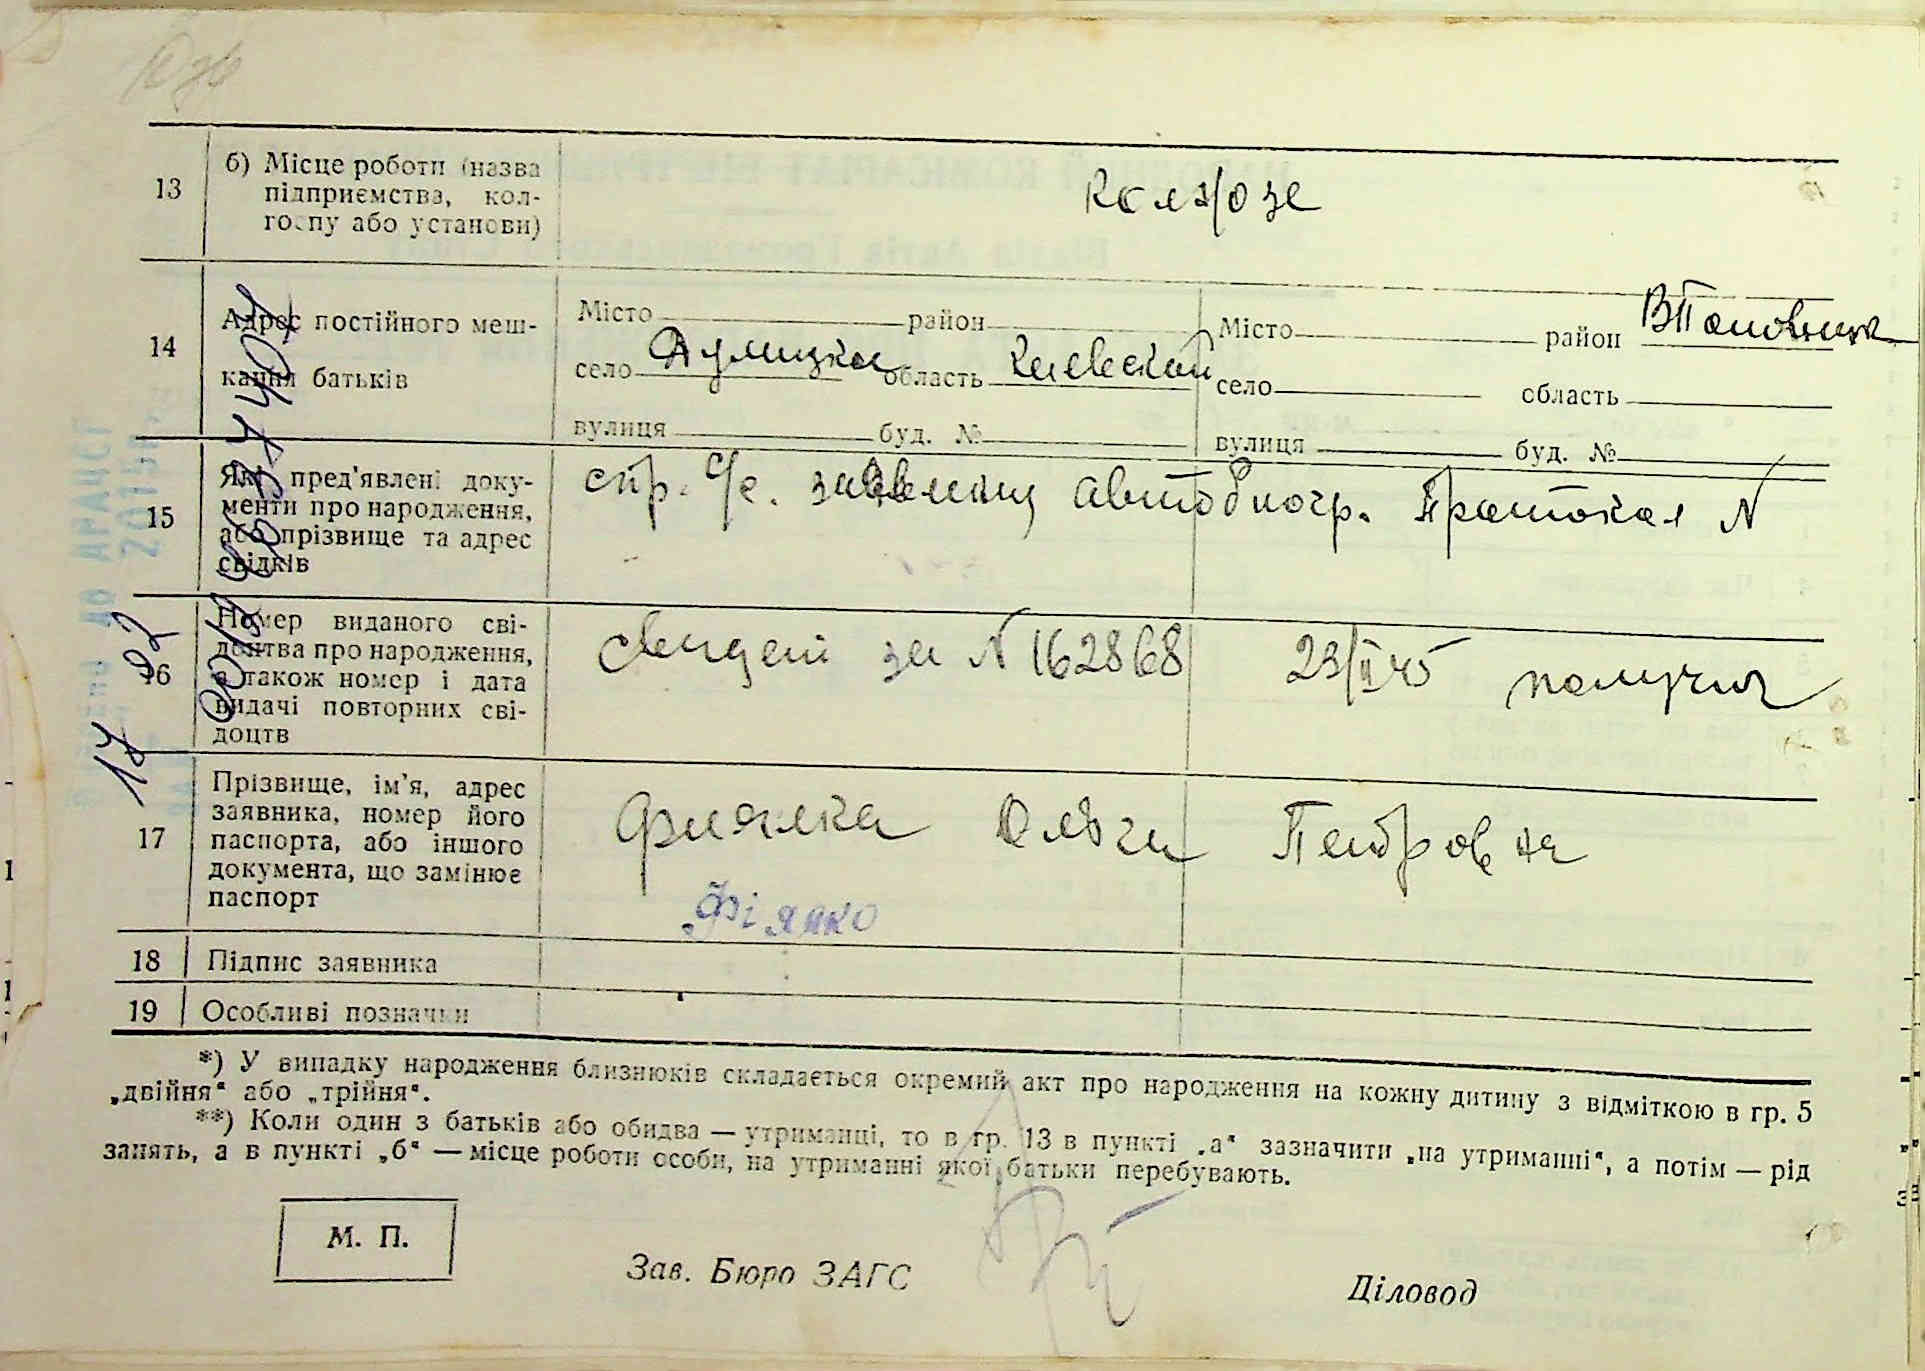 13
б) Місце роботи (назва
підприємства, кол-
госпу або установи)
колхозе
14
Адрес постійного меш-
кання батьків
Місто район
село область Киевской
вулиця буд. №
Місто район
село область
вулиця буд. №
15
Які пред'явлені доку-
менти про народження,
або прізвище та адрес
свідків
спр. с/с. автобиогр. Пратокал N
16
Номер виданого сві-
доцтва про народження,
а також номер і дата
видачі повторних сві-
доцтв
за N 162868 23/II 45
17
Прізвище, ім'я, адрес
заявника, номер його
паспорта, або іншого
документа, що замінює
паспорт
Фиялка Ольга Петровна
Фіялко
18
Підпис заявника
19
Особливі позначки
*) У випадку народження близнюків складається окремий акт про народження на кожну дитину з відміткою в гр. 5
„двійня“ або „трійня“.
**) Коли один з батьків або обидва — утриманці, то в гр. 13 в пункті „а“ зазначити „на утриманні“, а потім — рід
занять, а в пункті „б“ — місце роботи особи, на утриманні якої батьки перебувають.
М. П.
Зав. Бюро ЗАГС
Діловод